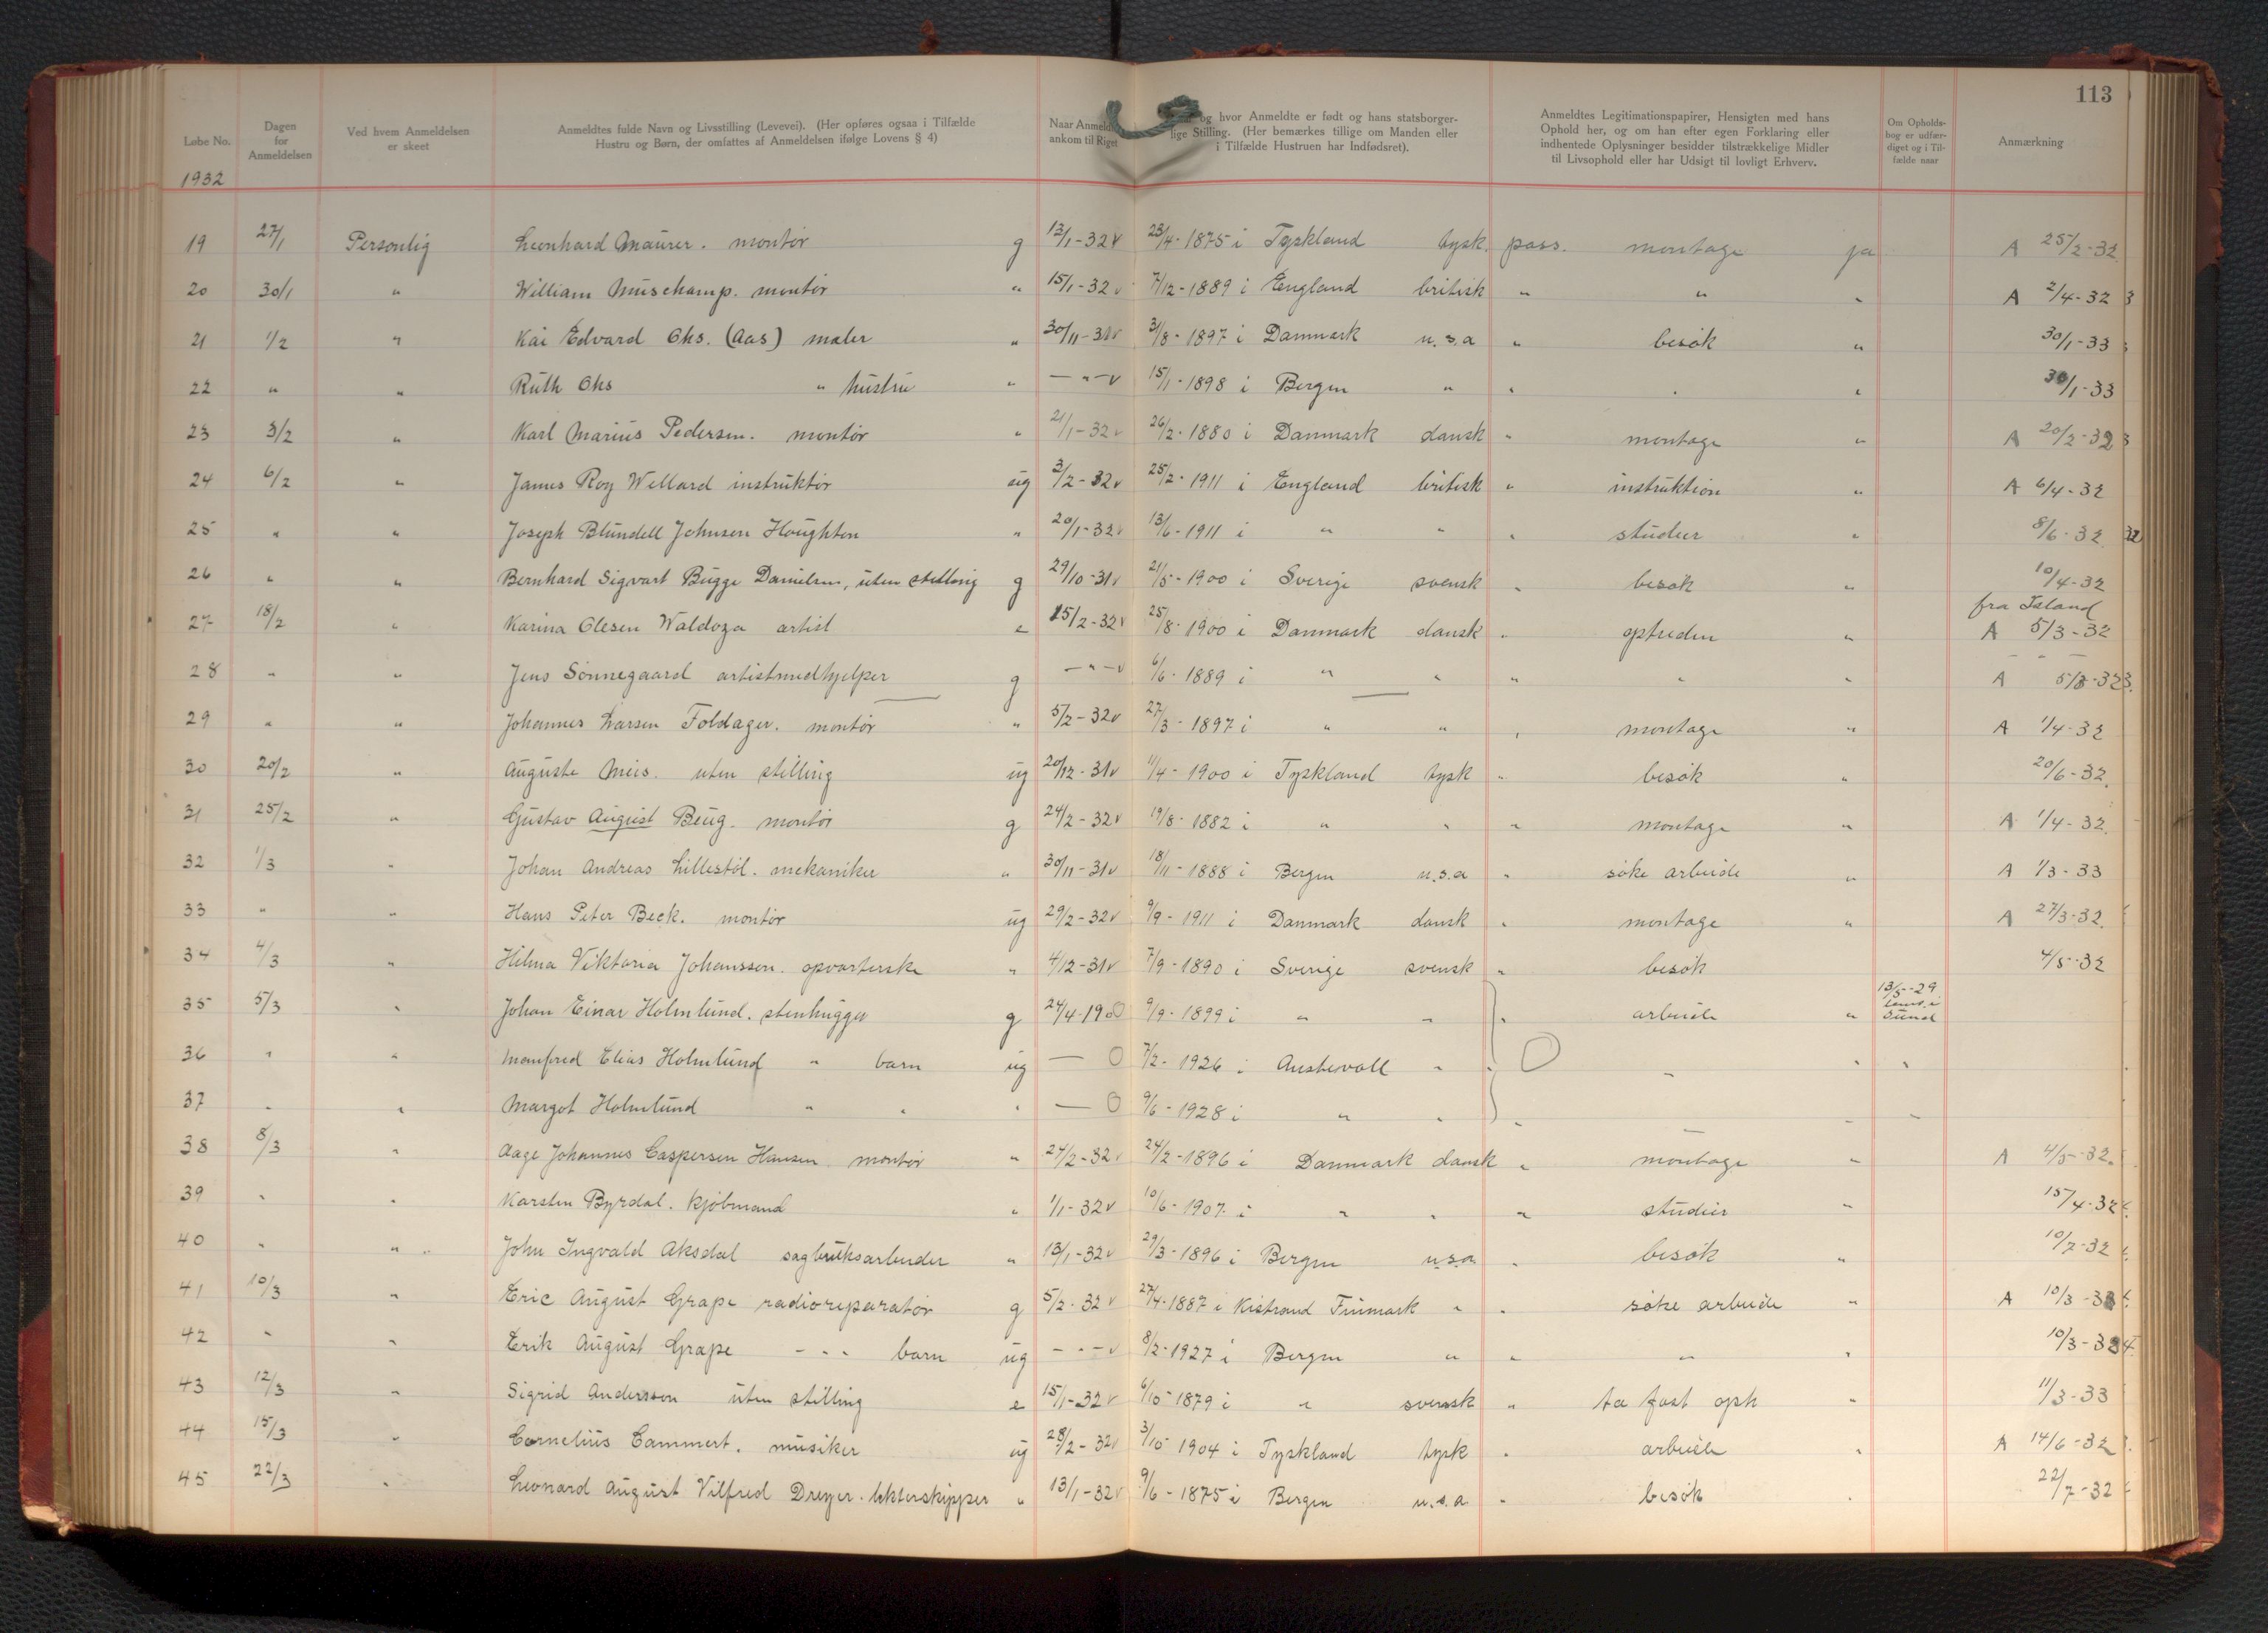 113
Løbe No. | Dagen for Anmeldelsen | Ved hvem Anmeldelsen er skeet | Anmeldtes fulde Navn og Livsstilling (Levevei). (Her opføres ogsaa i Tilfælde Hustru og Børn, der omfattes af Anmeldelsen ifølge Lovens § 4) | Naar Anmeldte ankom til Riget | og hvor Anmeldte er født og hans statsborgerlige Stilling. (Her bemærkes tillige om Manden eller i Tilfælde Hustruen har Indfødsret). | Anmeldtes Legitimationspapirer, Hensigten med hans Ophold her, og om han efter egen Forklaring eller indhentede Oplysninger besidder tilstrækkelige Midler til Livsophold eller har Udsigt til lovligt Erhverv. | Om Opholdsbog er udfærdiget og i Tilfælde naar | Anmærkning
1932
19 27/1 Personlig Leonhard Maurer. montör g 12/1-32 v 23/4-1875 i Tyskland tysk. pass. montage ja A 25/2-32
20 30/1 " William Muschamp. montör " 15/1-32 v 7/12-1889 i England britisk " " " A 2/4-32
21 1/2 " Kai Edvard Ohs. (Aas) maler " 30/11-31 v 31/8-1897 i Danmark u.s.a " besök " 30/1-33
22 " " Ruth Ohs " hustru " — " — v 15/1-1898 i Bergen " " " " 30/1-33
23 3/2 " Karl Marius Pedersen. montör " 21/1-32 v 26/2-1880 i Danmark dansk " montage " A 20/2-32
24 6/2 " James Roy Willard instruktör ug 3/2-32 v 25/2-1911 i England britisk " instruktion " A 6/4-32
25 " " Joseph Blundell Johnson Houghton " 20/1-32 v 13/6-1911 i " " " studier " 8/6-32
26 " " Bernhard Sigvart Bugge Danielsen, uten stilling g 29/10-31 v 21/5-1900 i Sverige svensk " besök " 10/4-32
fra Island
27 18/2 " Karina Olesen Waldoza artist e 15/2-32 v 25/8-1900 i Danmark dansk " optreden " A 5/3-32
28 " " Jens Sönnegaard artistmedhjelper g — " — v 6/6-1889 i " " " " " A 5/3-32
29 " " Johannes Larsen Foldager. montör " 5/2-32 v 27/3-1897 i " " " montage " A 1/4-32
30 20/2 " Auguste Meis. uten stilling ug 20/12-31 v 11/4-1900 i Tyskland tysk " besök " 20/6-32
31 25/2 " Gustav August Beug. montör g 24/2-32 v 19/8-1882 i " " " montage " A 1/4-32.
32 1/3 " Johan Andreas Lillestöl. mekaniker " 30/11-31 v 18/11-1888 i Bergen u.s.a " söke arbeide " A 1/3-33
33 " " Hans Peter Beck. montör ug 29/2-32 v 9/9-1911 i Danmark dansk " montage " A 27/3-32.
34 4/3 " Hilma Viktoria Johansson. opvarterske " 4/12-31 v 7/9-1890 i Sverige svensk " besök 4/5-32
35 5/3 " Johan Einar Holmlund. stenhugger g 24/4-1900 9/9-1899 i " " " arbeide " 13/5-29 Lens. i Sund
36 " " Manfred Elias Holmlund " barn ug — 0 7/2-1926 i Austevoll " " " " "
37 " " Margot Holmlund " " " — 0 9/6-1928 i " " " " " "
38 8/3 " Aage Johannes Caspersen Hansen. montör " 24/2-32 v 24/2-1896 i Danmark dansk " montage " A 4/5-32.
39 " " Karsten Byrdal. Kjöbmand " 1/1-32 v 10/6-1907 i " " " studier " 15/4-32
40 " " John Ingvald Aksdal sagbruksarbeider " 13/1-32 v 29/3-1896 i Bergen u.s.a. " besök " 10/7-32
41 10/3 " Eric August Grape radioreparatör g 5/2-32 v 27/4-1887 i Kistrand Finmark " " söke arbeide " A 10/3-33
42 " " Erik August Grape - " - barn ug - " - v 8/2-1927 i Bergen " " " " 10/3-33
43 12/3 " Sigrid Andersson uten stilling e 15/1-32 v 6/10-1879 i " svensk " ta fast oph " 11/3-33
44 15/3 " Cornelius Cammert. musiker ug 28/2-32 v 3/10-1904 i Tyskland tysk " arbeide " A 14/6-32
45 22/3 " Leonard August Vilfred Dreyer. lekterskipper " 13/1-32 v 9/6-1875 i Bergen u.s.a. " besök " 22/7-32